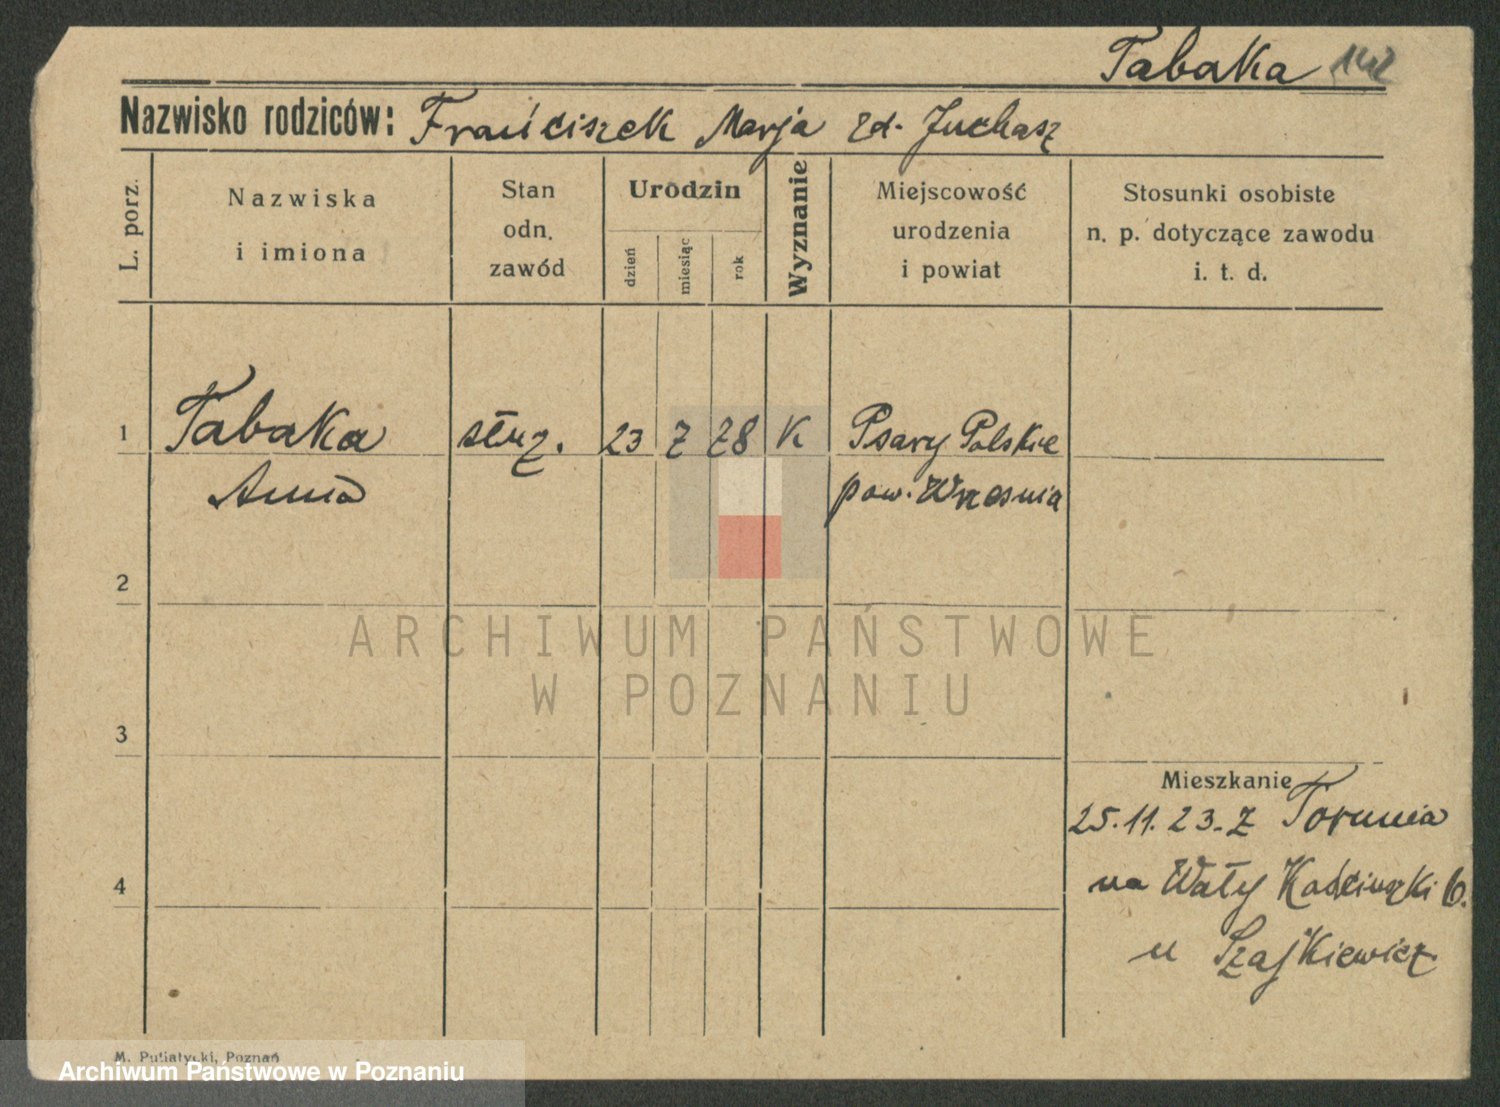 Tabaka 142
Nazwisko rodziców: Franciszek Marja zd. Juchasz
L. porz.
Nazwiska
i imiona
Stan
odn.
zawód
Urodzin
dzień
miesiąc
rok
Wyznanie
Miejscowość
urodzenia
i powiat
Stosunki osobiste
n. p. dotyczące zawodu
i. t. d.
1 Tabaka służ. 23 7 78 K Psary Polskie
Anna pow. Września
2
ARCHIWUM PAŃSTWOWE
W POZNANIU
3
Mieszkanie
25.11.23. Z Torunia
4
na Wały
u Szajkiewicz
M. Putiatycki, Poznań
Archiwum Państwowe w Poznaniu